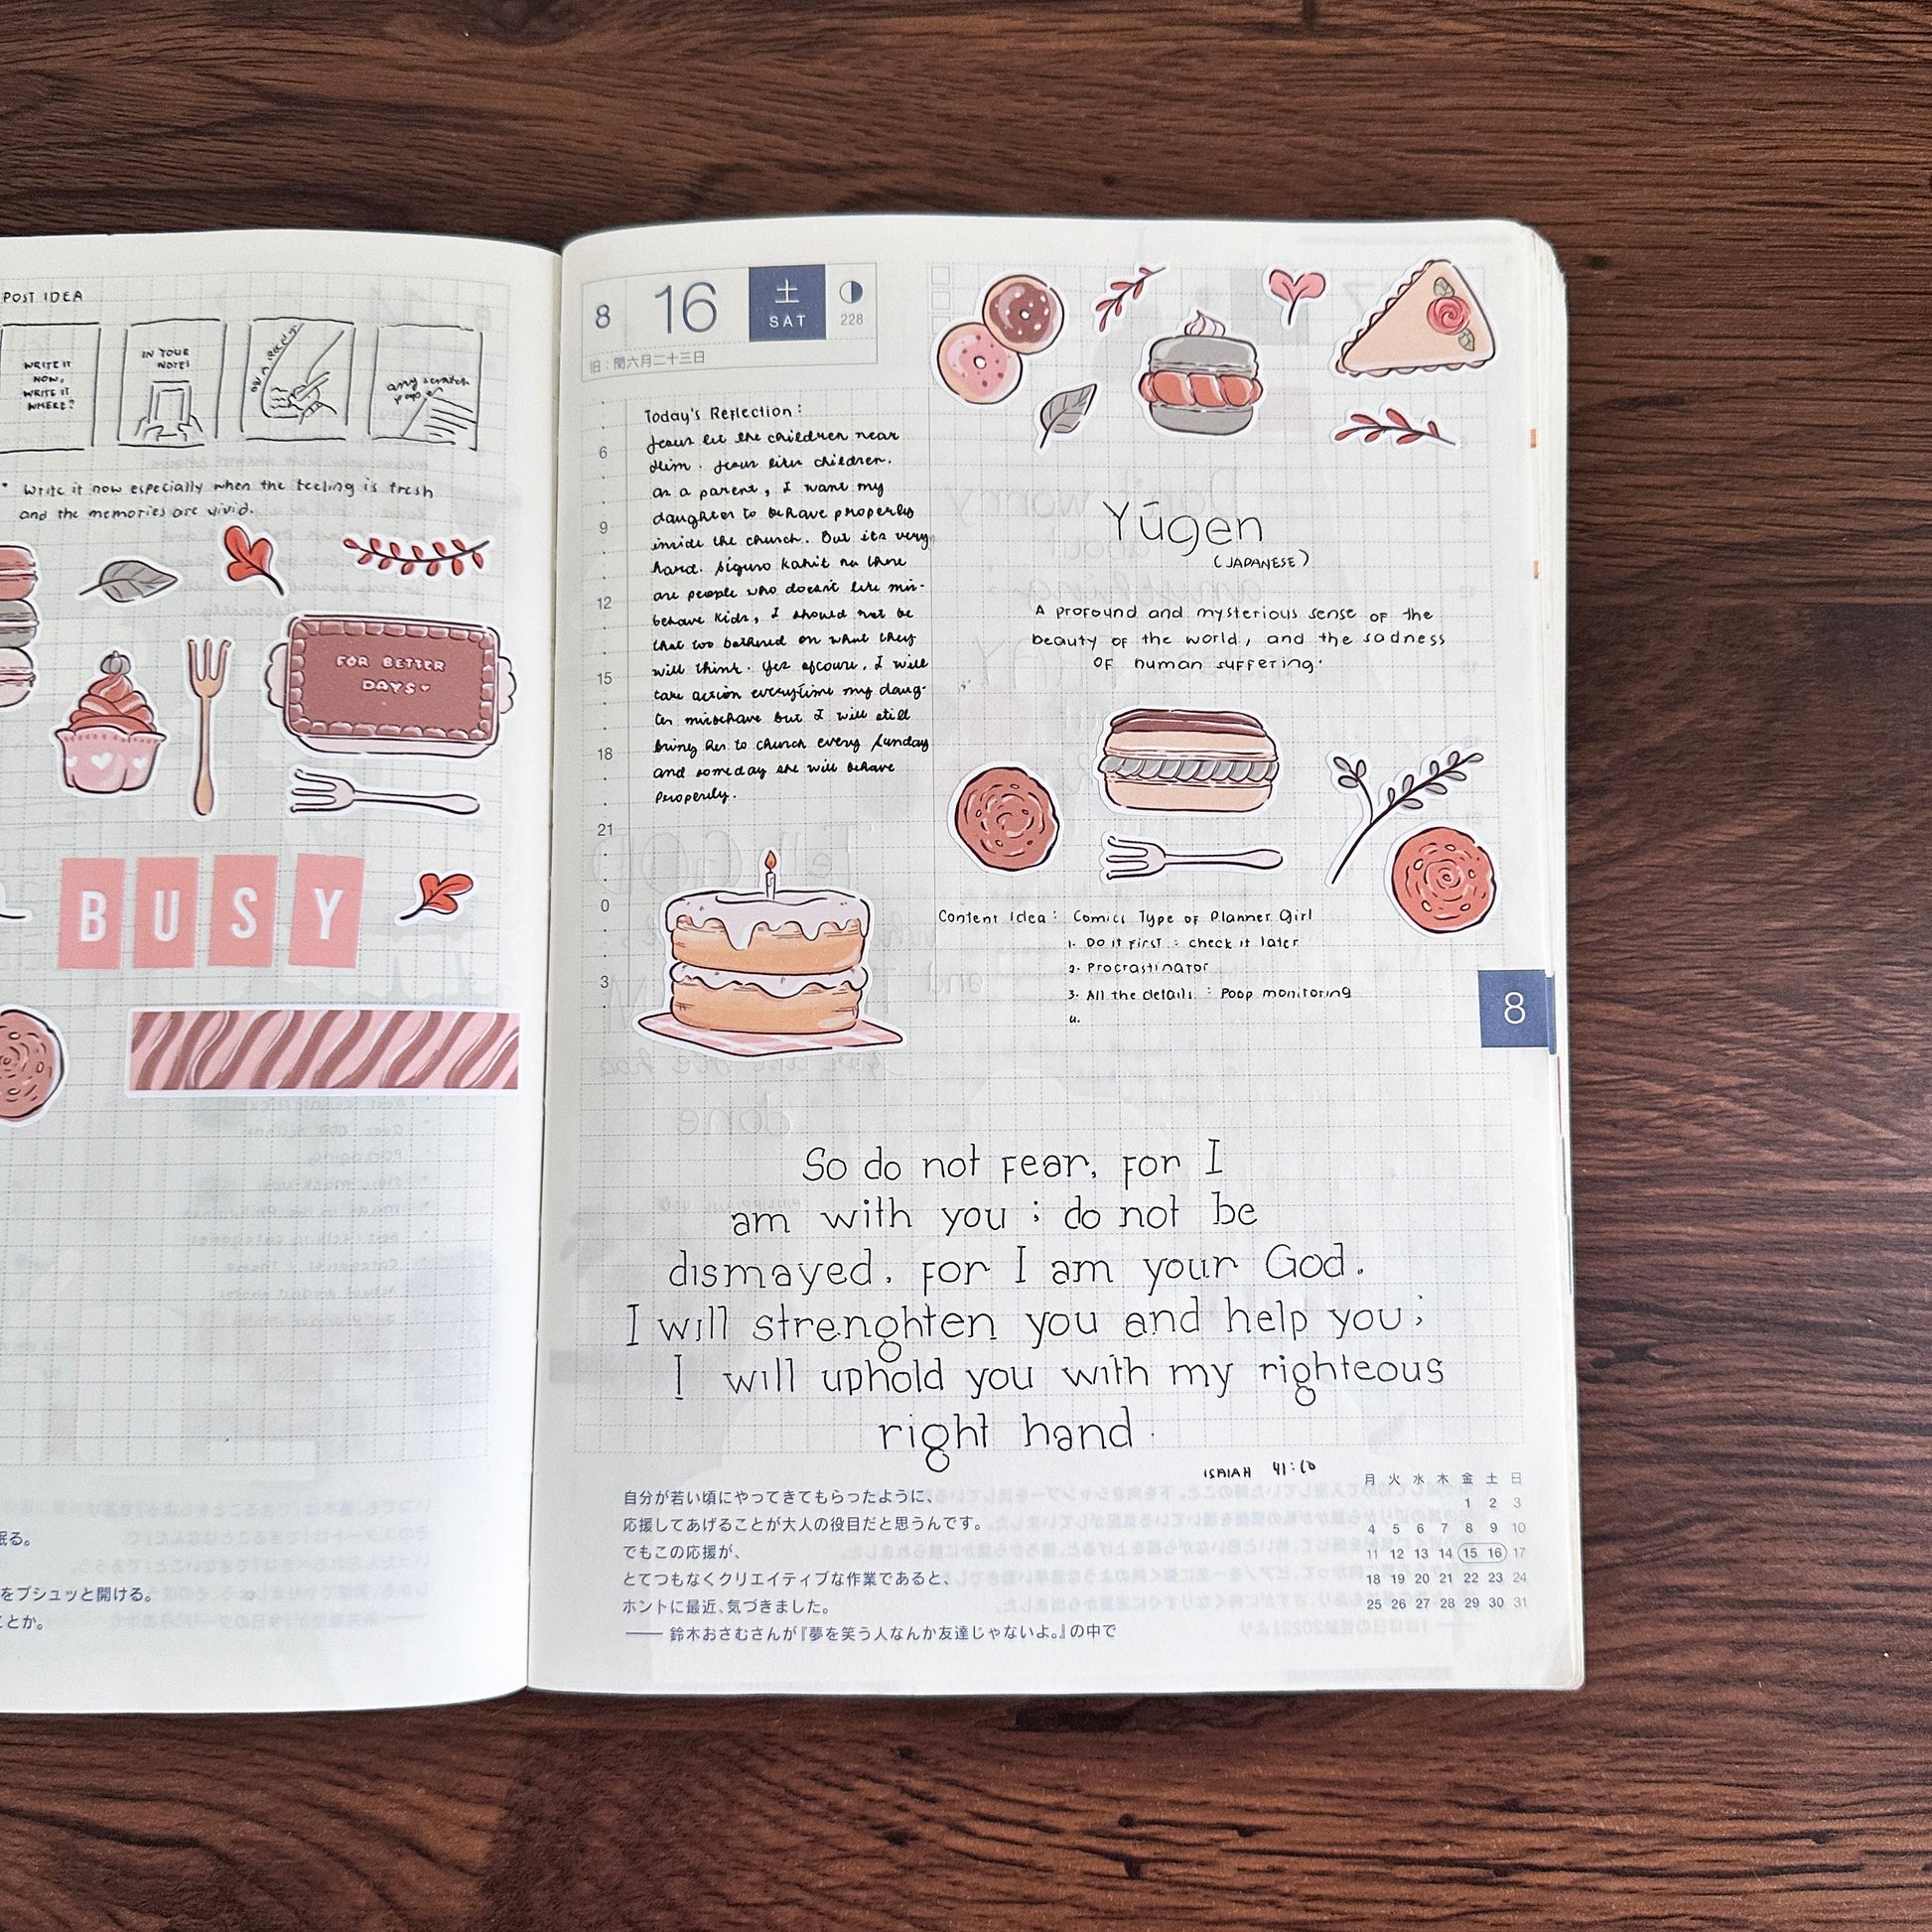 POST IDEA
WRITE IT
NOW,
WRITE IT
WHERE?
IN YOUR
NOTES
any scratch
paper
• Write it now especially when the feeling is fresh
and the memories are vivid.
FOR BETTER
DAYS
BUSY
眠る。
をプシュッと開ける。
ことか。
8 16 土 SAT 228
旧：閏六月二十三日
6
9
12
15
18
21
0
3
Today's Reflection:
Jesus let the children near
Him. Jesus likes children.
As a parent, I want my
daughter to behave properly
inside the church. But its very
hard. Siguro kahit na there
are people who doesn't like mis-
behave kids, I should not be
that too bothered on what they
will think. Yes ofcourse, I will
take action everytime my daug-
ter misbehave but I will still
bring her to church every Sunday
and someday she will behave
properly.
Yūgen
(JAPANESE)
A profound and mysterious sense of the
beauty of the world, and the sadness
of human suffering.
Content Idea: Comics Type of Planner Girl
1. Do it first : check it later
2. Procrastinator
3. All the details : Poop monitoring
4.
8
So do not fear, for I
am with you ; do not be
dismayed, for I am your God.
I will strenghten you and help you;
I will uphold you with my righteous
right hand.
ISAIAH 41:10
自分が若い頃にやってきてもらったように、
応援してあげることが大人の役目だと思うんです。
でもこの応援が、
とてつもなくクリエイティブな作業であると、
ホントに最近、気づきました。
—— 鈴木おさむさんが『夢を笑う人なんか友達じゃないよ。』の中で
月 火 水 木 金 土 日
1 2 3
4 5 6 7 8 9 10
11 12 13 14 15 16 17
18 19 20 21 22 23 24
25 26 27 28 29 30 31